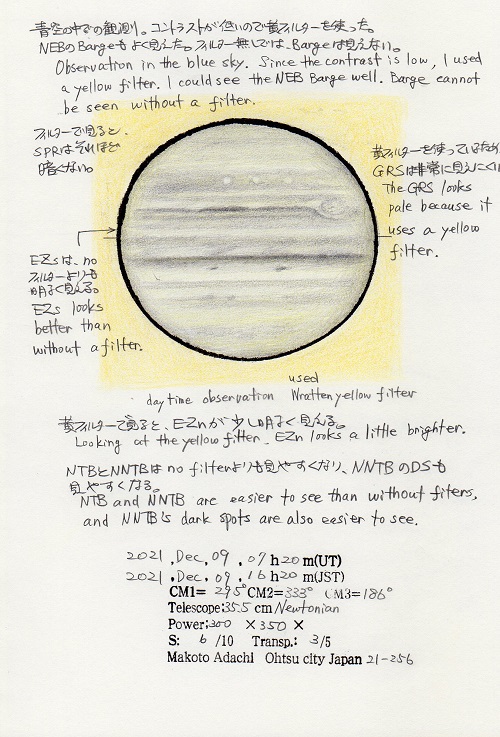 青空の中での観測。コントラストが低いので黄フィルターを使った。
NEBのBargeもよく見えた。フィルター無しでは、Bargeは見えない。
Observation in the blue sky. Since the contrast is low, I used
a yellow filter. I could see the NEB Barge well. Barge cannot
be seen without a filter.
フィルターで見ると、
SPRはそれほど
暗くない。
黄フィルターを使っているため
GRSは非常に見えにくい
The GRS looks
pale because it
uses a yellow
filter.
EZsは、no
フィルターよりも
明るく見える。
EZs looks
better than
without a filter.
used
daytime observation Wratten yellow filter
黄フィルターで見ると、EZnが少し明るく見える。
Looking at the yellow filter, EZn looks a little brighter.
NTBとNNTBはno filterよりも見やすくなり、NNTBのDSも
見やすくなる。
NTB and NNTB are easier to see than without filters,
and NNTB's dark spots are also easier to see.
2021 , Dec, 09 , 07 h 20 m(UT)
2021 , Dec, 09 , 16 h 20 m(JST)
CM1= 295° CM2= 333° CM3= 186°
Telescope: 35.5 cm Newtonian
Power; 300 × 350 ×
S: 6 /10 Transp.: 3/5
Makoto Adachi Ohtsu city Japan 21-256